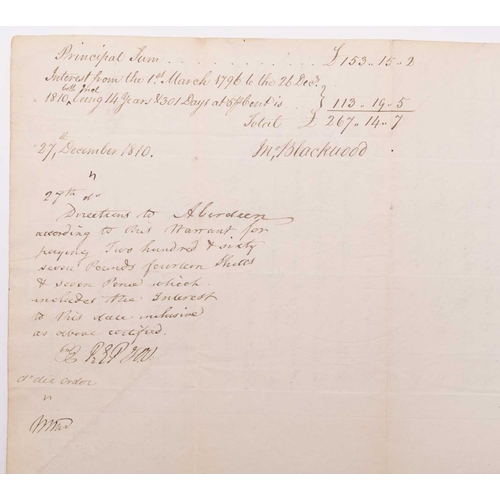 Principal Sum . . . . . . . . . £153..15..2
Interest from the 1st March 1796 to the 26 Decr.
both Incl
1810, being 14 Years & 301 Days at 5 pCent is . } 113..19..5
Total £ 267..14..7
27th December 1810. Jn. Blackwood
"
27th do
Directions to Aberdeen
according to this Warrant for
paying Two hundred & sixty
seven Pounds fourteen Shills
& seven Pence which
includes the Interest
to this date inclusive
as above certified.
order
"